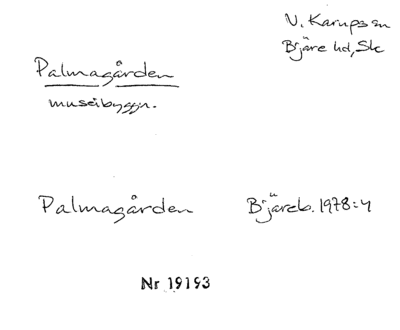 V. Karups sn
Bjäre hd, Sk
Palmagården
museibyggn.
Palmagården Bjäreb. 1978:4
Nr 19193